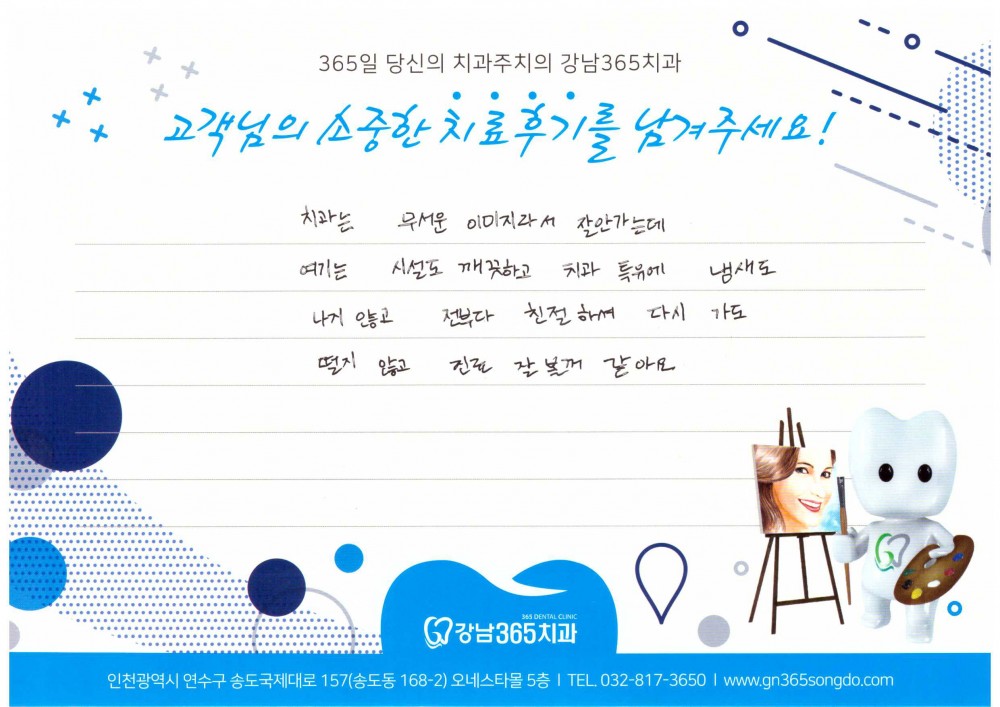 365일 당신의 치과주치의 강남365치과
고객님의 소중한 치료후기를 남겨주세요!
치과는 무서운 이미지라서 잘안가는데
여기는 시설도 깨끗하고 치과 특유에 냄새도
나거 않고 전부다 친절하셔 다시 가도
떨지 않고 진료 잘 볼꺼 같아요
365 DENTAL CLINIC
강남365치과
인천광역시 연수구 송도국제대로 157(송도동 168-2) 오네스타몰 5층 I TEL. 032-817-3650 I www.gn365songdo.com